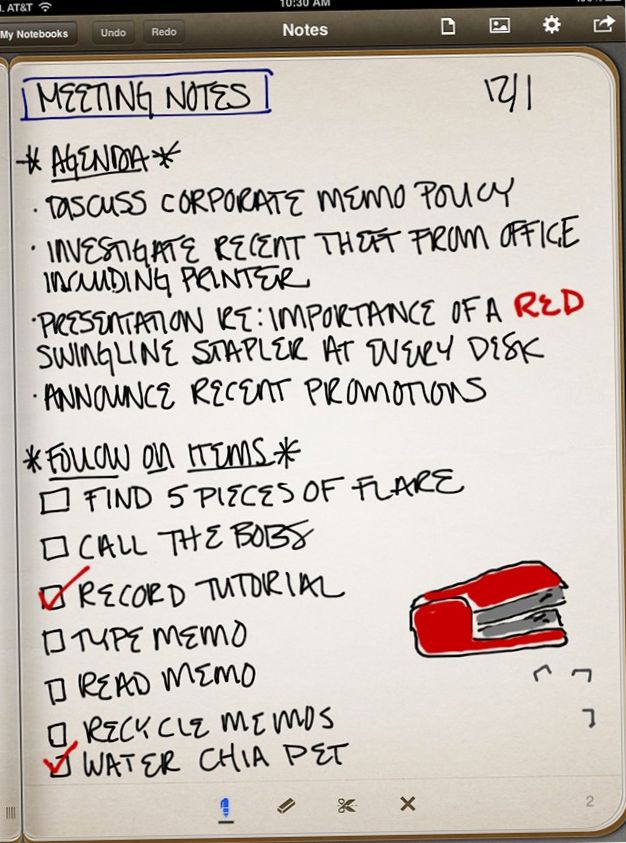 AT&T 10:30 AM
My Notebooks Undo Redo Notes
MEETING NOTES 12/1
* AGENDA *
· DISCUSS CORPORATE MEMO POLICY
· INVESTIGATE RECENT THEFT FROM OFFICE
INCLUDING PRINTER
· PRESENTATION RE: IMPORTANCE OF A RED
SWINGLINE STAPLER AT EVERY DESK
· ANNOUNCE RECENT PROMOTIONS
* FOLLOW ON ITEMS *
FIND 5 PIECES OF FLARE
CALL THE BOBS
RECORD TUTORIAL
TYPE MEMO
READ MEMO
RECYCLE MEMOS
WATER CHIA PET
2